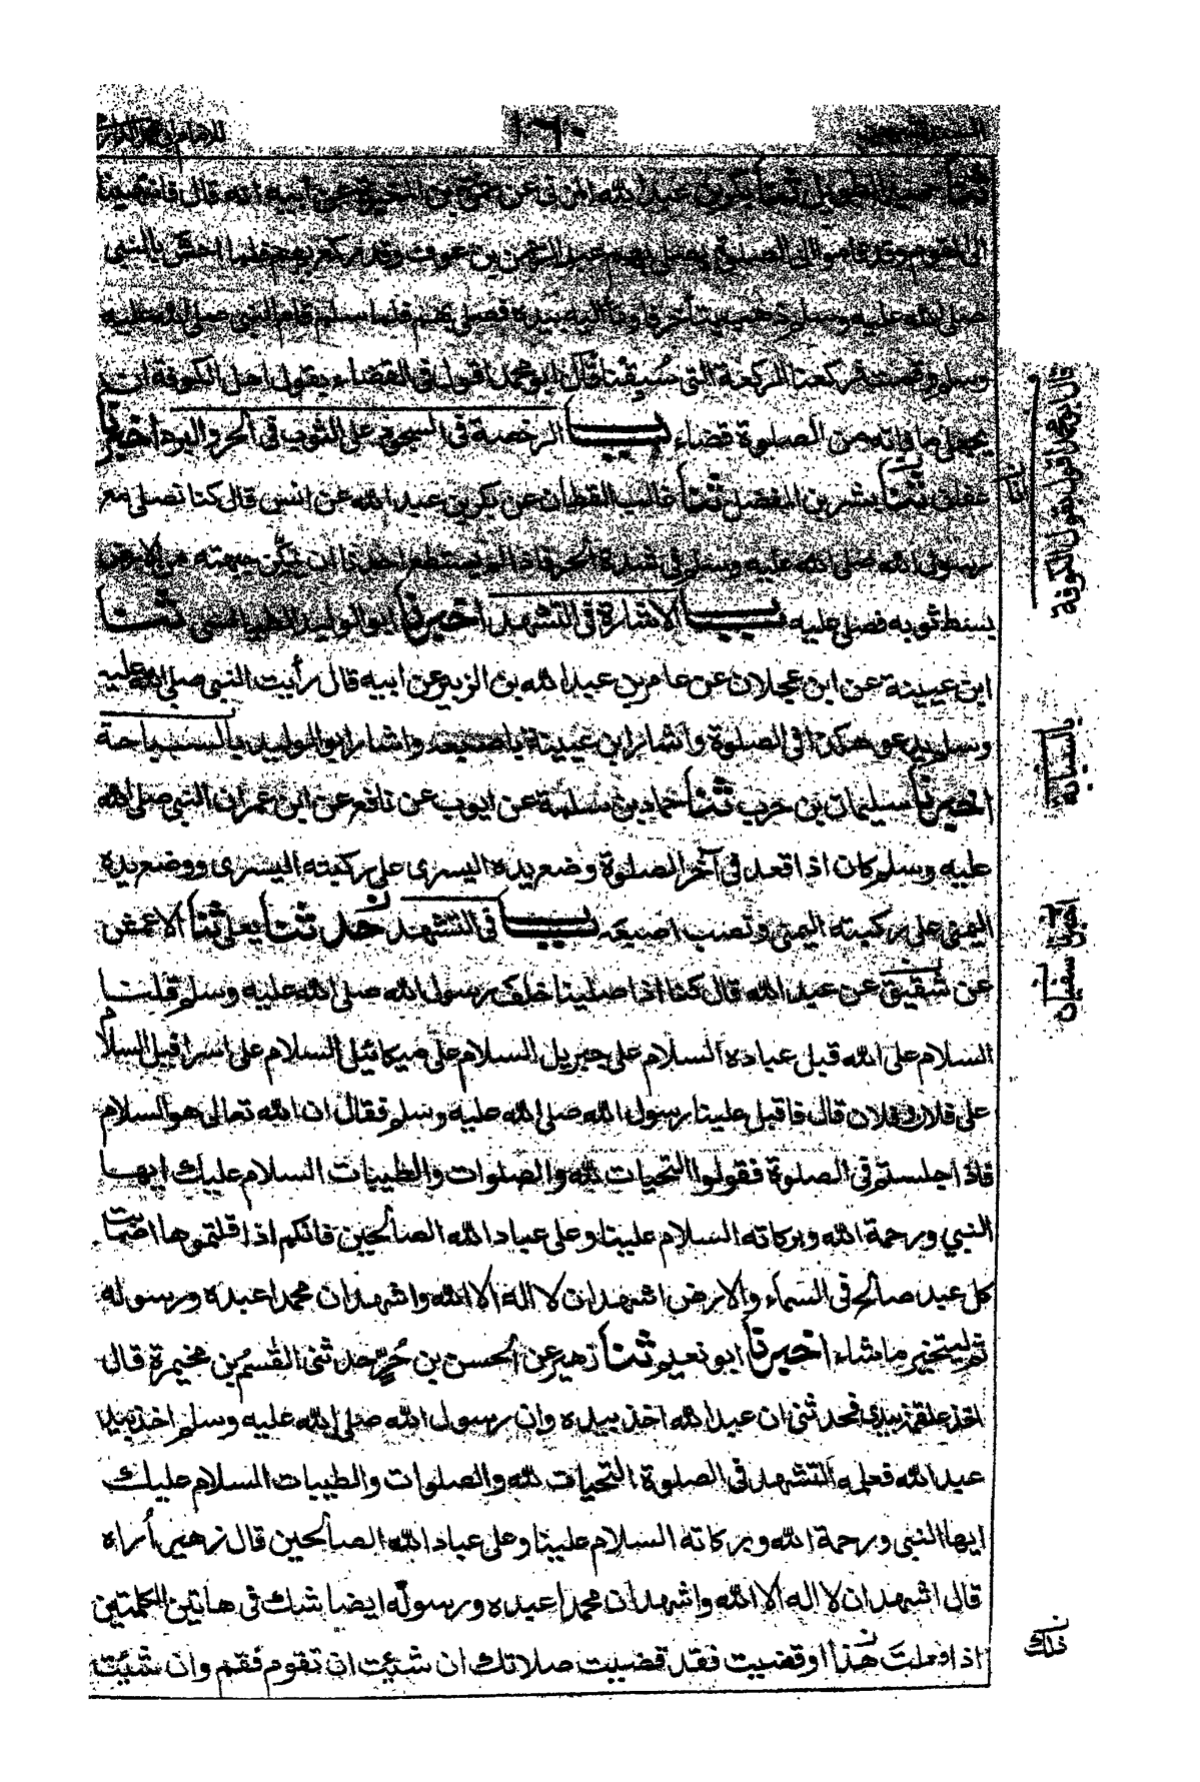 ١٦٠
ثنا حميد الطويل ثنا بكر بن عبد الله المزني عن حمزة بن المغيرة عن ابيه انه قال فانتهينا
الى القوم وقد قاموا الى الصلوة يصلى بهم عبد الرحمن بن عوف وقد ركع بهم فلما احس بالنبى
صلى الله عليه وسلم ذهب يتأخر فاومأ اليه بيده فصلى بهم فلما سلم قام النبى صلى الله عليه
وسلم وقمت فركعنا الركعة التى سُبقنا قال ابو محمد اقول فى القضاء بقول اهل الكوفة ان
يجعل ما فاته من الصلوة قضاء باب الرخصة فى السجود على الثوب فى الحر والبرد اخبرنا
عفان ثنا بشر بن المفضل ثنا غالب القطان عن بكر بن عبد الله عن انس قال كنا نصلى مع
رسول الله صلى الله عليه وسلم فى شدة الحر فاذا لم يستطع احدنا ان يمكّن جبهته من الارض
بسط ثوبه فصلى عليه باب الاشارة فى التشهد اخبرنا ابو الوليد الطيالسى ثنا
ابن عيينة عن ابن عجلان عن عامر بن عبد الله بن الزبير عن ابيه قال رأيت النبى صلى الله عليه
وسلم يدعو هكذا فى الصلوة وأشار ابن عيينة باصبعه واشار ابو الوليد بالسباحة
اخبرنا سليمان بن حرب ثنا حماد بن سلمة عن ايوب عن نافع عن ابن عمر ان النبى صلى الله
عليه وسلم كان اذا قعد فى آخر الصلوة وضع يده اليسرى على ركبته اليسرى ووضع يده
اليمنى على ركبته اليمنى ونصب اصبعه باب فى التشهد حدثنا يعلى ثنا الاعمش
عن شقيق عن عبد الله قال كنا اذا صلينا خلف رسول الله صلى الله عليه وسلم قلنا
السلام على الله قبل عباده السلام على جبريل السلام على ميكائيل السلام على اسرافيل السلام
على فلان وفلان قال فاقبل علينا رسول الله صلى الله عليه وسلم فقال ان الله تعالى هو السلام
فاذا جلستم فى الصلوة فقولوا التحيات لله والصلوات والطيبات السلام عليك ايها
النبي ورحمة الله وبركاته السلام علينا وعلى عباد الله الصالحين فانكم اذا قلتموها اصابت
كل عبد صالح فى السماء والارض اشهد ان لا اله الا الله واشهد ان محمدا عبده ورسوله
ثم ليتخير ما شاء اخبرنا ابو نعيم ثنا زهير عن الحسن بن حُرّ حدثنى القسم بن مخيمرة قال
اخذ علقمة بيدى فحدثنى ان عبد الله اخذ بيده وان رسول الله صلى الله عليه وسلم اخذ بيد
عبد الله فعلمه التشهد فى الصلوة التحيات لله والصلوات والطيبات السلام عليك
ايها النبى ورحمة الله وبركاته السلام علينا وعلى عباد الله الصالحين قال زهير أراه
قال اشهد ان لا اله الا الله واشهد ان محمدا عبده ورسوله ايضا شك فى هاتين الكلمتين
اذا فعلت هذا او قضيت فقد قضيت صلاتك ان شئت ان تقوم فقم وان شئت
انا
بالسبابة
اخبرنا سفيان
ذلك